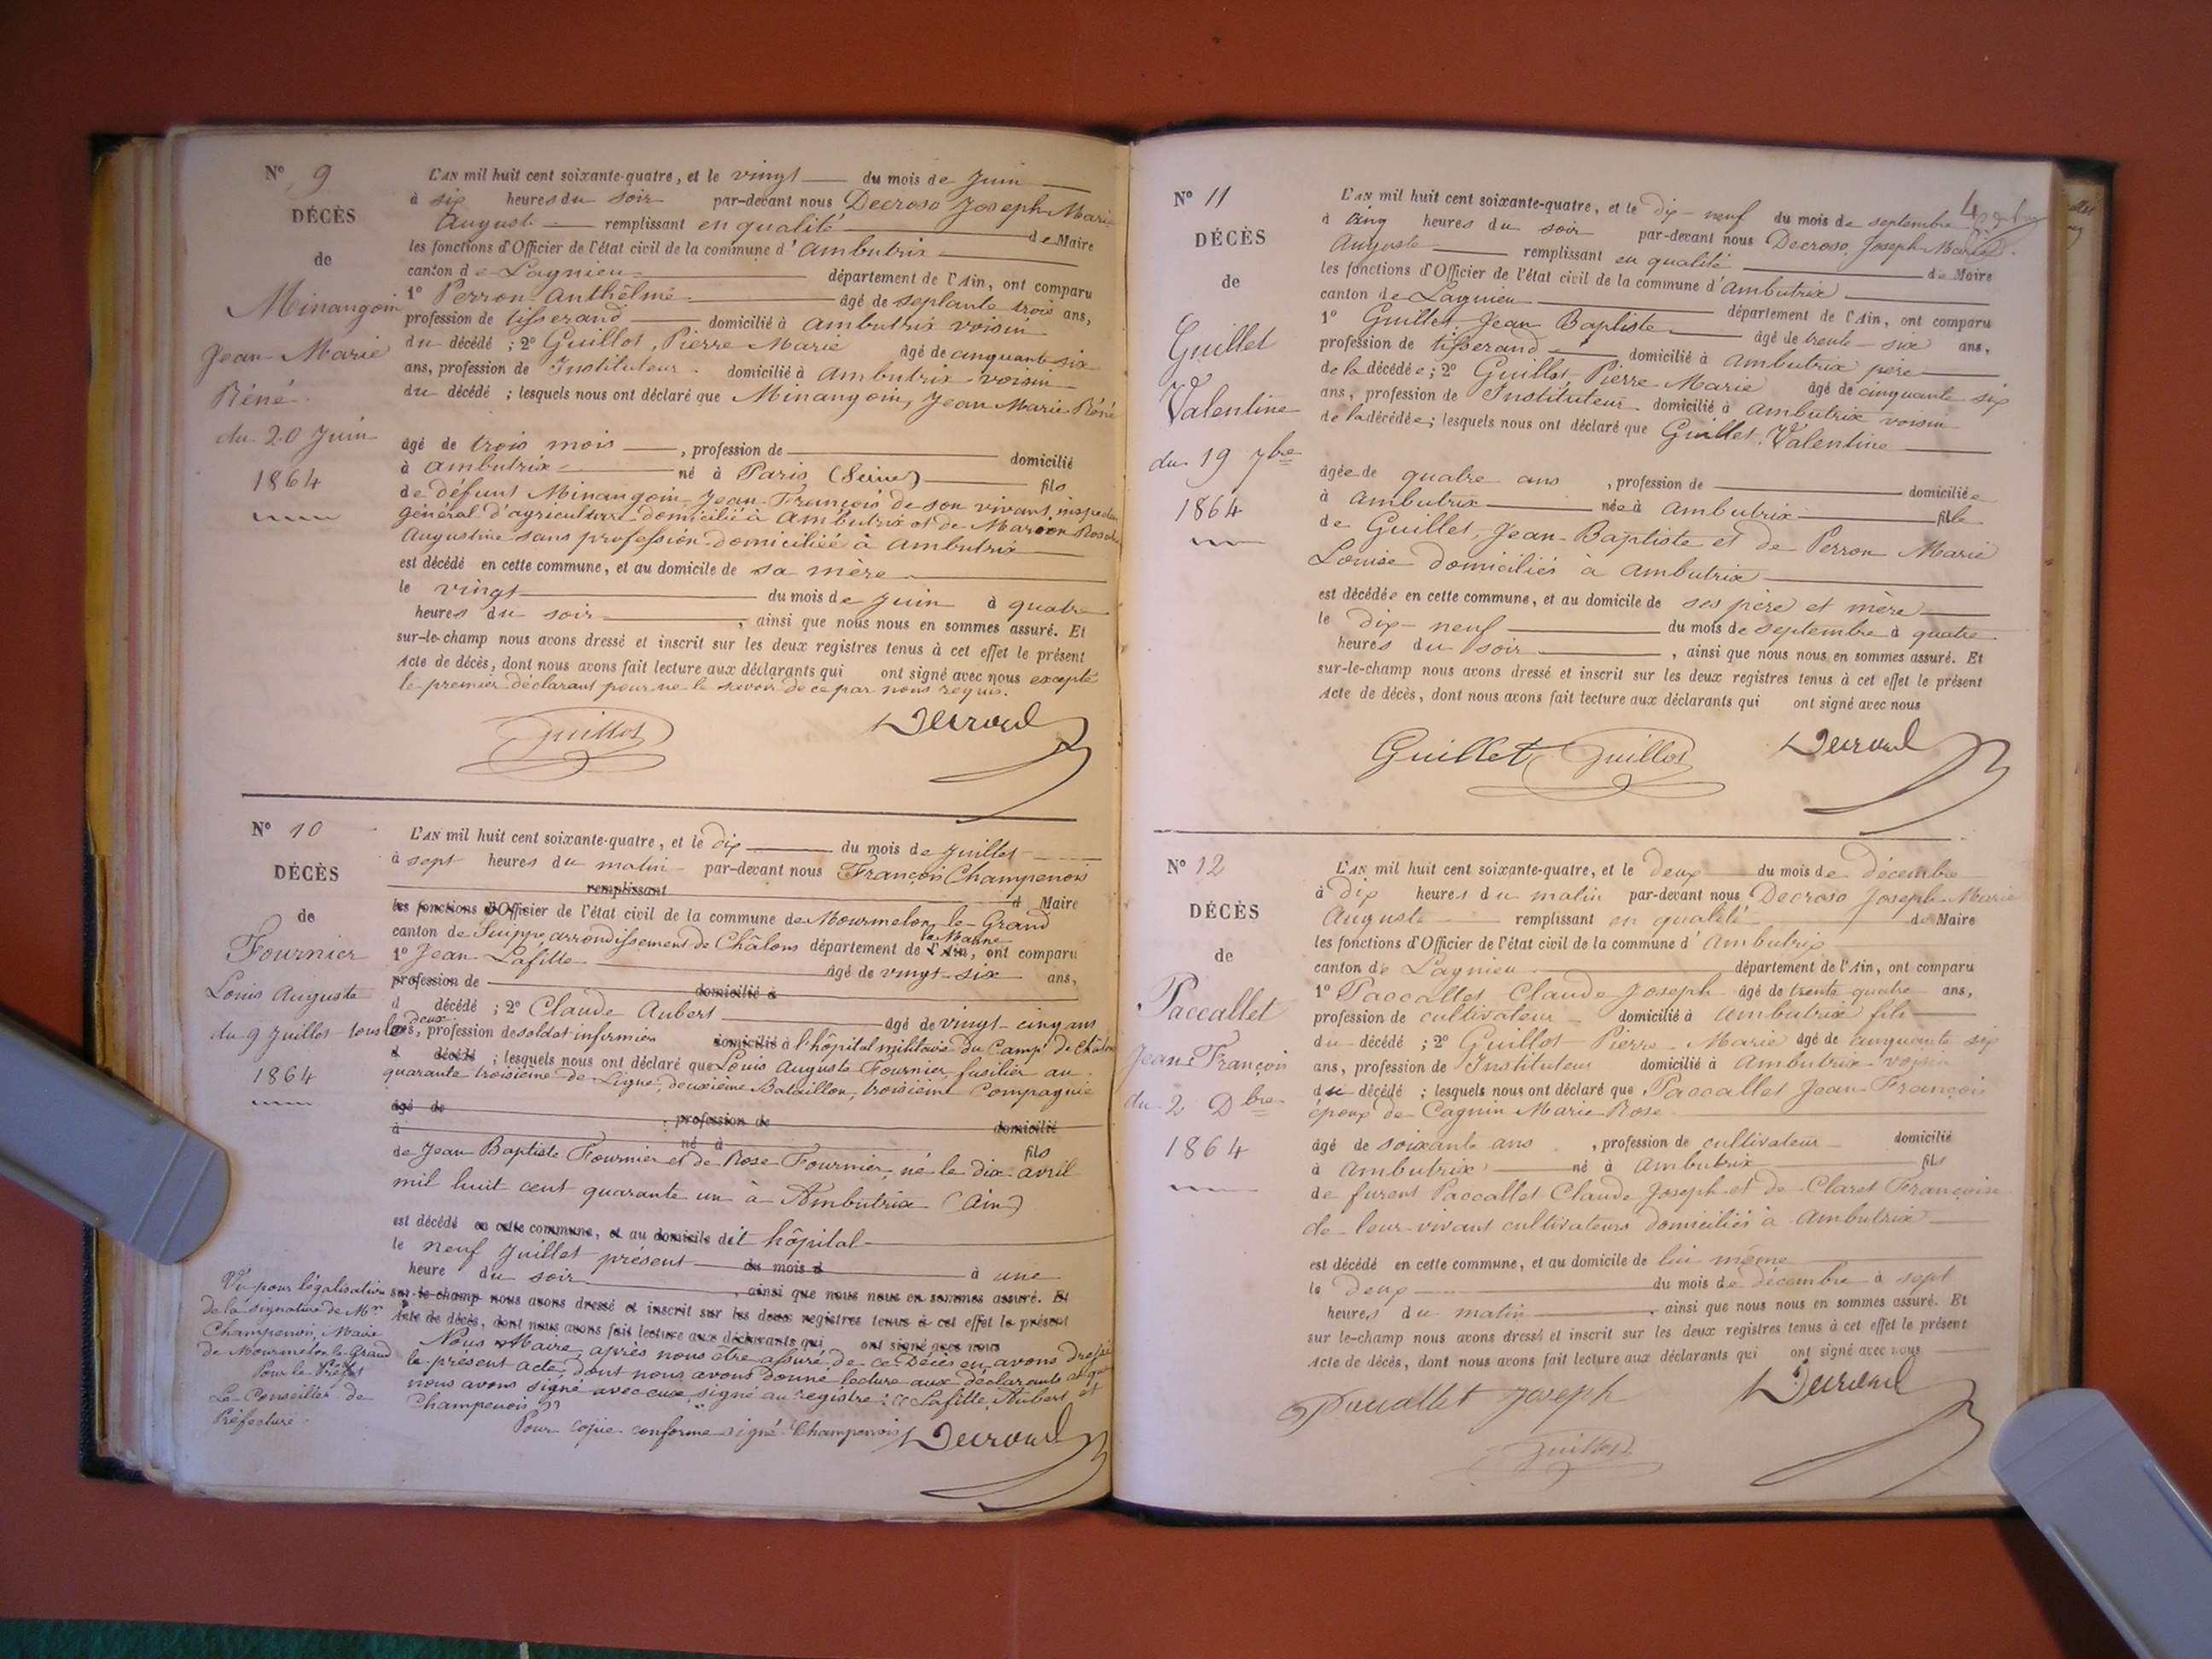 N° 9
DÉCÈS
de
Minangoin
Jean-Marie
Réné.
du 20 Juin
1864
L'AN mil huit cent soixante-quatre, et le vingt du mois de Juin
à six heures du soir par-devant nous Decroso Joseph Marie
Auguste remplissant en qualité de Maire
les fonctions d'Officier de l'état civil de la commune d'ambutrix
canton de Lagnieu département de l'Ain, ont comparu
1° Perron Anthelme âgé de septante trois ans,
profession de tisserand domicilié à ambutrix voisin
du décédé ; 2° Guillot, Pierre Marie âgé de cinquante six
ans, profession de Instituteur domicilié à ambutrix voisin
du décédé ; lesquels nous ont déclaré que Minangoin, Jean Marie Réné
âgé de trois mois , profession de domicilié
à ambutrix né à Paris (Seine) fils
de défunt Minangoin Jean-François de son vivant inspecteur
général d'agriculture domicilié à ambutrix et de
Augustine sans profession domiciliée à ambutrix
est décédé en cette commune, et au domicile de sa mère
le vingt du mois de Juin à quatre
heures du soir , ainsi que nous nous en sommes assuré. Et
sur-le-champ nous avons dressé et inscrit sur les deux registres tenus à cet effet le présent
Acte de décès, dont nous avons fait lecture aux déclarants qui ont signé avec nous excepté
le premier déclarant pour ne le savoir de ce par nous requis.
Guillot
N° 10
DÉCÈS
de
Fournier
Louis Auguste
du 9 Juillet
1864
L'AN mil huit cent soixante-quatre, et le dix du mois de Juillet
à sept heures du matin par-devant nous François Champenois
remplissant d Maire
les fonctions d'Officier de l'état civil de la commune de Mourmelon-le-Grand
canton de Suippe arrondissement de Châlons département de la Marne l'Ain, ont comparu
1° Jean Lafitte âgé de vingt-six ans,
profession de domicilié à
d décédé ; 2° Claude Aubert âgé de vingt-cinq ans
tous les deux ans, profession de soldat infirmier domicilié à l'hôpital militaire du Camp de Châlons
d décédé ; lesquels nous ont déclaré que Louis Auguste Fournier, fusilier au
quarante troisième de Ligne deuxième Bataillon, troisième Compagnie
âgé de , profession de domicilié
à né à fils
de Jean Baptiste Fournier et de Rose Fournier, né le dix avril
mil huit cent quarante un à Ambutrix (Ain)
est décédé en cette commune, et au domicile dit hôpital
le neuf Juillet présent du mois d à une
heure du soir , ainsi que nous nous en sommes assuré. Et
sur-le-champ nous avons dressé et inscrit sur les deux registres tenus à cet effet le présent
Acte de décès, dont nous avons fait lecture aux déclarants qui ont signé avec nous
Nous Maire, après nous être assuré de ce Décès en avons dressé
le présent acte, dont nous avons donné lecture aux déclarants et que
nous avons signé avec eux, signé au registre : « Lafitte, Aubert et
Champenois »
Pour copie conforme signé Champenois
Vu pour légalisation
de la signature de Mr
Champenois, Maire
de Mourmelon-le-Grand
Pour le Préfet
Le Conseiller de
Préfecture.
N° 11
DÉCÈS
de
Guillet
Valentine
du 19 7bre
1864
L'AN mil huit cent soixante-quatre, et le dix-neuf du mois de septembre
à cinq heures du soir par-devant nous Decroso, Joseph Marie
Auguste remplissant en qualité de Maire
les fonctions d'Officier de l'état civil de la commune d'ambutrix
canton de Lagnieu département de l'Ain, ont comparu
1° Guillet Jean Baptiste âgé de trente-six ans,
profession de tisserand domicilié à ambutrix père
de la décédée ; 2° Guillot, Pierre Marie âgé de cinquante six
ans, profession de Instituteur domicilié à ambutrix voisin
de la décédée ; lesquels nous ont déclaré que Guillet, Valentine
âgée de quatre ans , profession de domiciliée
à ambutrix née à ambutrix fille
de Guillet, Jean-Baptiste et de Perron Marie
Louise domiciliés à ambutrix
est décédée en cette commune, et au domicile de ses père et mère
le dix-neuf du mois de septembre à quatre
heures du soir , ainsi que nous nous en sommes assuré. Et
sur-le-champ nous avons dressé et inscrit sur les deux registres tenus à cet effet le présent
Acte de décès, dont nous avons fait lecture aux déclarants qui ont signé avec nous
Guillet Guillot
N° 12
DÉCÈS
de
Paccallet
Jean-François
du 2 Dbre
1864
L'AN mil huit cent soixante-quatre, et le deux du mois de décembre
à dix heures du matin par-devant nous Decroso Joseph Marie
Auguste remplissant en qualité de Maire
les fonctions d'Officier de l'état civil de la commune d'ambutrix
canton de Lagnieu département de l'Ain, ont comparu
1° Paccallet Claude Joseph âgé de trente quatre ans,
profession de cultivateur domicilié à ambutrix fils
du décédé ; 2° Guillot Pierre Marie âgé de cinquante six
ans, profession de Instituteur domicilié à ambutrix voisin
du décédé ; lesquels nous ont déclaré que Paccallet Jean-François
époux de Cagnin Marie Rose
âgé de soixante ans , profession de cultivateur domicilié
à ambutrix né à ambutrix fils
de furent Paccallet Claude Joseph et de Claret Françoise
de leur vivant cultivateurs domiciliés à ambutrix
est décédé en cette commune, et au domicile de lui même
le deux du mois de décembre à sept
heures du matin , ainsi que nous nous en sommes assuré. Et
sur-le-champ nous avons dressé et inscrit sur les deux registres tenus à cet effet le présent
Acte de décès, dont nous avons fait lecture aux déclarants qui ont signé avec nous
Paccallet Joseph
Guillot